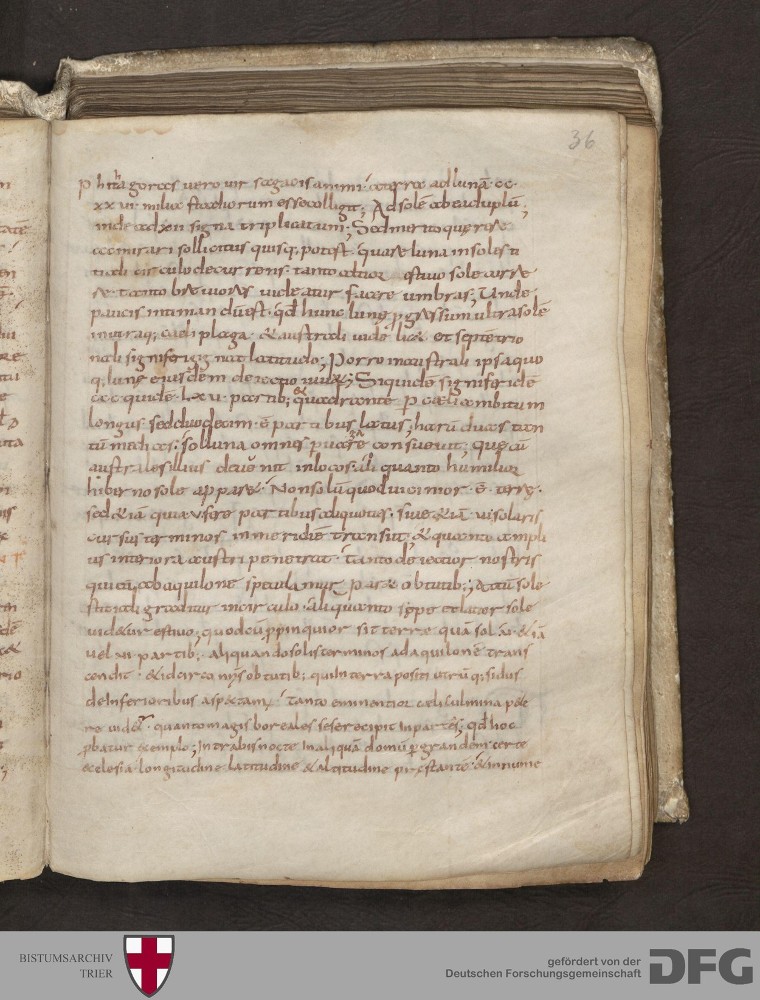 36
phitagoras uero uir sagacis animi· a terra ad lunā· cc·
xx vi· milia stadiorum esse collegit; Ad solē ab ea duplū;
inde ad xii signa triplicatum; Sed merito querise
ac mirari sollicitus quisq; potest· quare luna in solesti
tiali circulo decurrens· tanto altior estiuo sole
tanto breuiores uideatur facere umbras; Unde
paucis intimandū est· qđ hunc lunę ꝑgressum ultra solē
in utraq; caeli plaga· & australi uidelic& et septentrio
nali signiferi gignat latitudo; Porro in australi ipsa quo
q; lunę eiusdem deiectio iuuat; Siquidē signifer idē
ccc quidē· lxv· partib; & quadrante p caeli ambitum
longus· sed duodecim· ē partibus latus; harū duas tan
tū medias· sol luna omnes puagare consueuit; que cū
australes illius deuenit in locos· ali quanto humilior
hiberno sole appar&· Non solū quod uicinior· ē· terre·
sed &iā quia usere partibus aliquotiens· siue &iā· vi solaris
cursus terminos in meridiē transiit; & quanto ampli
us interiora austri penetrat· tanto deiectior nostris
qui eā ab aquilone speculamur par& obtutib;; at cū sole
stitiali graditur in circulo· ali quanto sępe et latior sole
uid&ur estiuo; quod cū ꝓpinquior sit terre quā sol· &iā
uel vi· partib;· aliquando solis terminos ad aquilonē trans
cendit· & idcirco nr̄is obtutib; qui in terra positi utrūq; sidus
de inferioribus aspectam; tanto eminentior caeli culmina pete
re uid&ur· quanto magis boreales sese recipit in partes; qđ hoc
ꝓbatur exemplo; Intrabis nocte in aliquā domū ꝑgrandem certe
ęclesia· longitudine latitudine & altitudine pręstantē· & innume
BISTUMSARCHIV
TRIER
gefördert von der
Deutschen Forschungsgemeinschaft
DFG